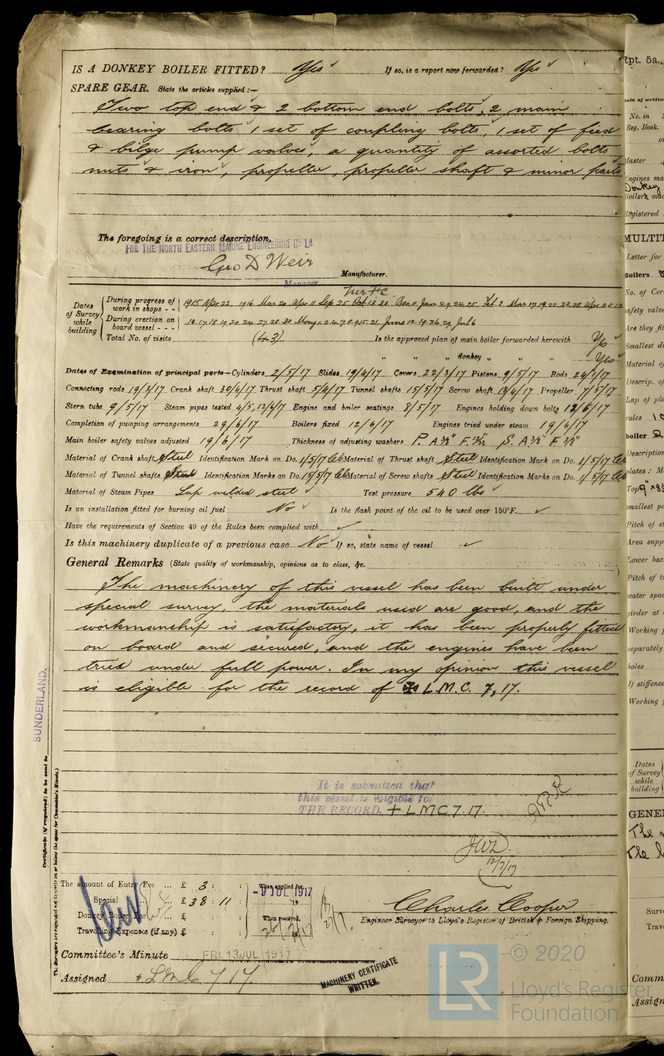 IS A DONKEY BOILER FITTED? Yes If so, is a report now forwarded? Yes
SPARE GEAR. State the articles supplied :—
Two top end & 2 bottom end bolts, 2 main
bearing bolts 1 set of coupling bolts, 1 set of feed
& bilge pump valves, a quantity of assorted bolts
nuts & iron, propeller, propeller shaft & minor parts
The foregoing is a correct description,
FOR THE NORTH EASTERN MARINE ENGINEERING Co Ld
Geo D Weir
Manager Manufacturer.
Dates of Survey while building
During progress of work in shops - - 1915 Nov 22 1916 Mar 20 Apr 11 Sep 25 Oct
During erection on board vessel - - -
Total No. of visits (43) Is the approved plan of main boiler forwarded herewith Yes
" " " donkey " " " Yes
Dates of Examination of principal parts—Cylinders 2/5/17 Slides 19/4/17 Covers 22/3/17 Pistons 9/5/17 Rods
Connecting rods 19/3/17 Crank shaft 30/4/17 Thrust shaft 5/4/17 Tunnel shafts 15/5/17 Screw shaft Propeller 7/5/17
Stern tube 9/5/17 Steam pipes tested 4/5, 12/6/17 Engine and boiler seatings 8/5/17 Engines holding down bolts 12/6/17
Completion of pumping arrangements 29/6/17 Boilers fixed 12/6/17 Engines tried under steam 19/6/17
Main boiler safety valves adjusted 19/6/17 Thickness of adjusting washers
Material of Crank shaft Steel Identification Mark on Do. 1/5/17 Material of Thrust shaft Steel Identification Mark on Do. 1/5/17
Material of Tunnel shafts Steel Identification Marks on Do. 15/5/17 Material of Screw shafts Steel Identification Marks on Do. 1/5/17
Material of Steam Pipes Lap welded steel Test pressure 540 lbs
Is an installation fitted for burning oil fuel No Is the flash point of the oil to be used over 150°F. ✓
Have the requirements of Section 49 of the Rules been complied with ✓
Is this machinery duplicate of a previous case No If so, state name of vessel ✓
General Remarks (State quality of workmanship, opinions as to class, &c.
The machinery of this vessel has been built under
special survey, the materials used are good, and the
workmanship is satisfactory, it has been properly fitted
on board and secured, and the engines have been
tried under full power. In my opinion this vessel
is eligible for the record of + L.M.C. 7, 17.
SUNDERLAND.
It is submitted that
this vessel is eligible for
THE RECORD. + LMC 7.17.
JWD
12/7/17
The amount of Entry Fee .. £ 3 : :
Special .. £ 38 : 11 :
Donkey Boiler Fee .. £ : :
Travelling Expenses (if any) £ : :
When applied for,
-9 JUL 1917
When received,
Charles Cooper
Engineer Surveyor to Lloyd's Register of British & Foreign Shipping.
Committee's Minute FRI. 13 JUL 1917
Assigned + LMC 7 17
MACHINERY CERTIFICATE
WRITTEN.
LR
© 2020
Lloyd's Register
Foundation
Rpt. 5a.
No. in
Reg. Book.
Master
Donkey
Registered
MULTI
Letter for
Boilers
No. of Cer
safety valve
Are they fit
Smallest di
Material of
Descrip. of
Lap of pla
rules
boiler
Description
smallest po
Pitch of st
Area supp
Lower back
Pitch of
water space
girder at
Working
separately
holes
If stiffene
Working
Dates
of Survey
while
building
GENE
The
The
Surve
Trave
Comm
Assign